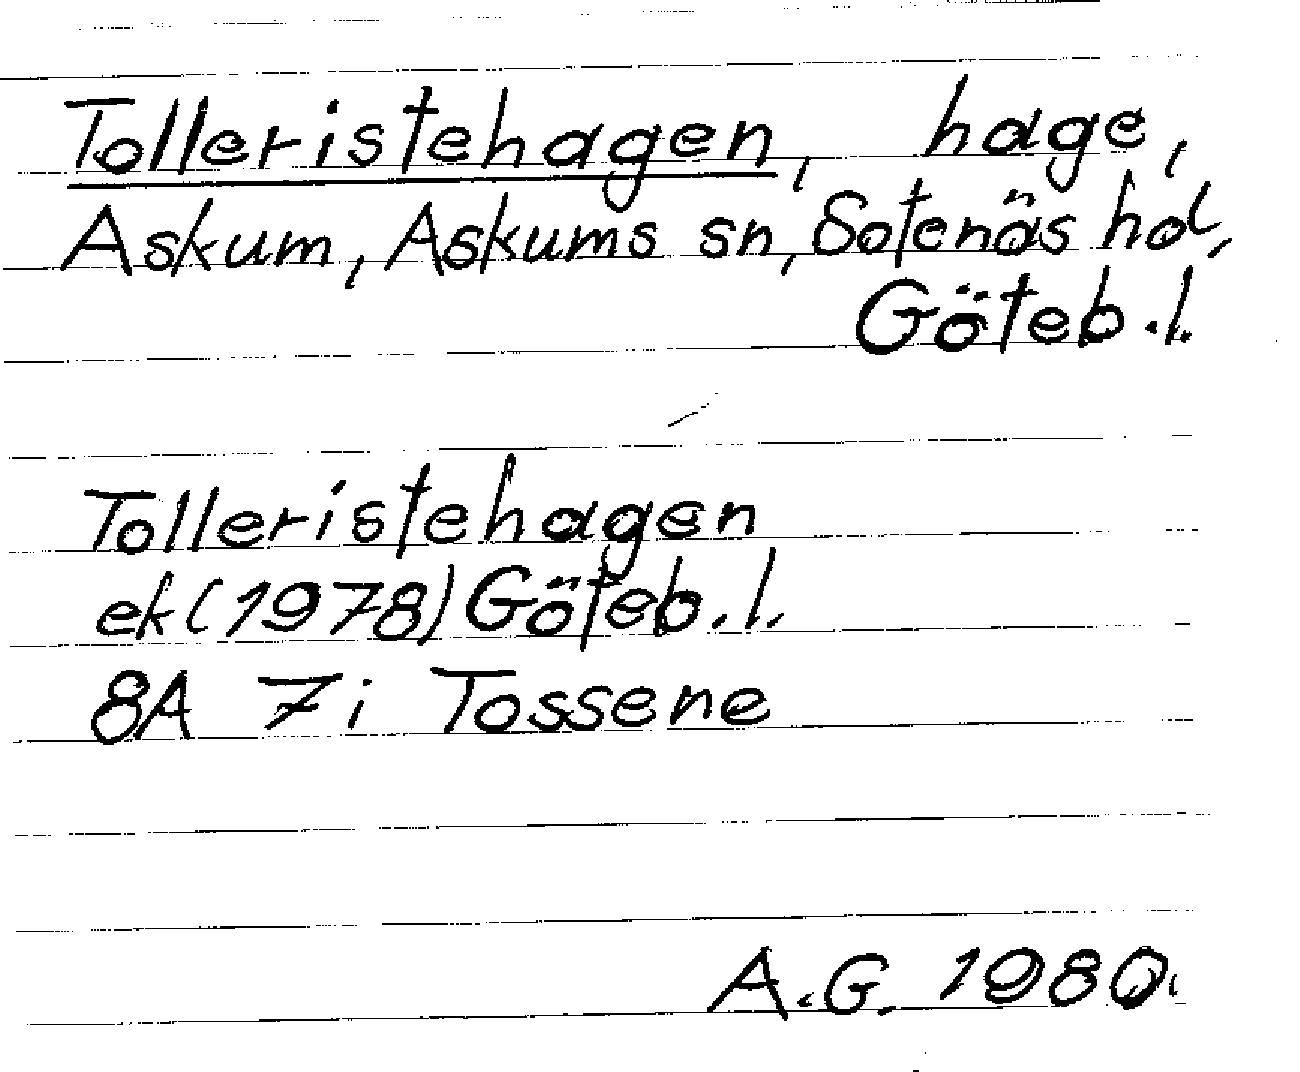 Tolleristehagen, hage,
Askum, Askums sn, Sotenäs hd,
Göteb.l.
Tolleristehagen
ek (1978) Göteb.l.
8A 7i Tossene
A.G. 1980.